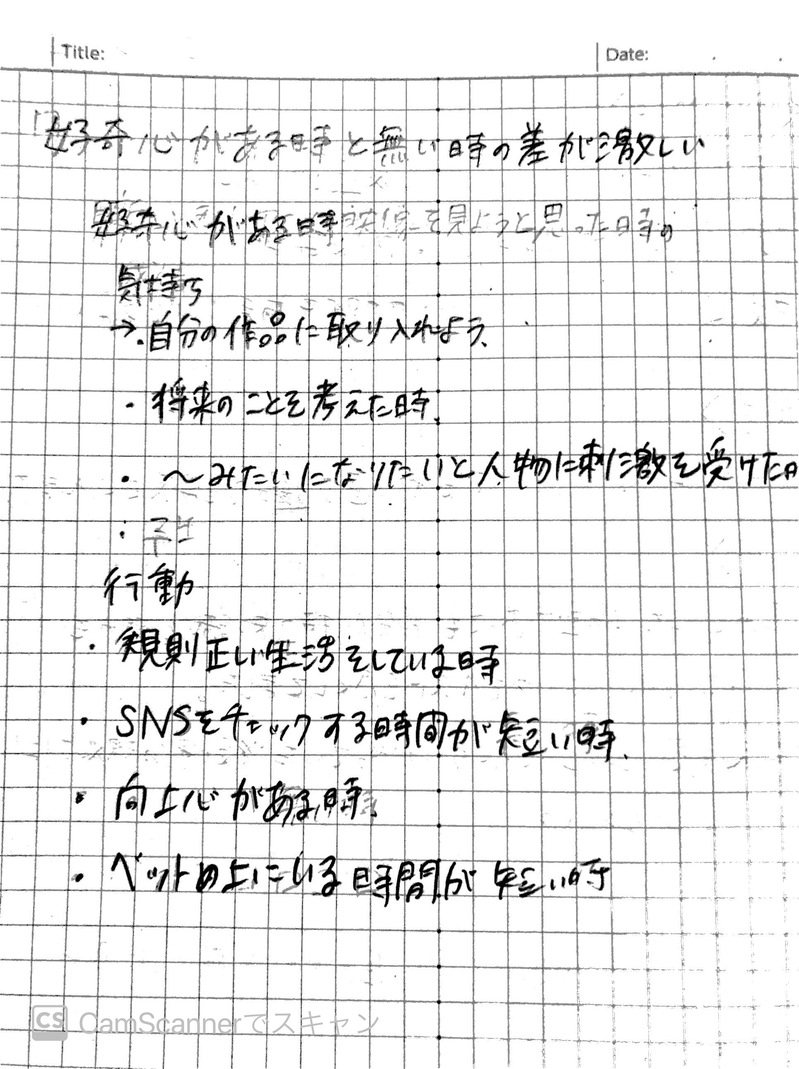 Title: Date:
好奇心がある時と無い時の差が激しい
好奇心がある時 を見ようと思った時の
気持ち
→・自分の作品に取り入れよう、
・将来のことを考えた時、
・〜みたいになりたいと人物に刺激を受けた
・
行動
・規則正しい生活をしている時
・SNSをチェックする時間が短い時、
・向上心がある時、
・ベットの上にいる時間が短い時
CS CamScannerでスキャン